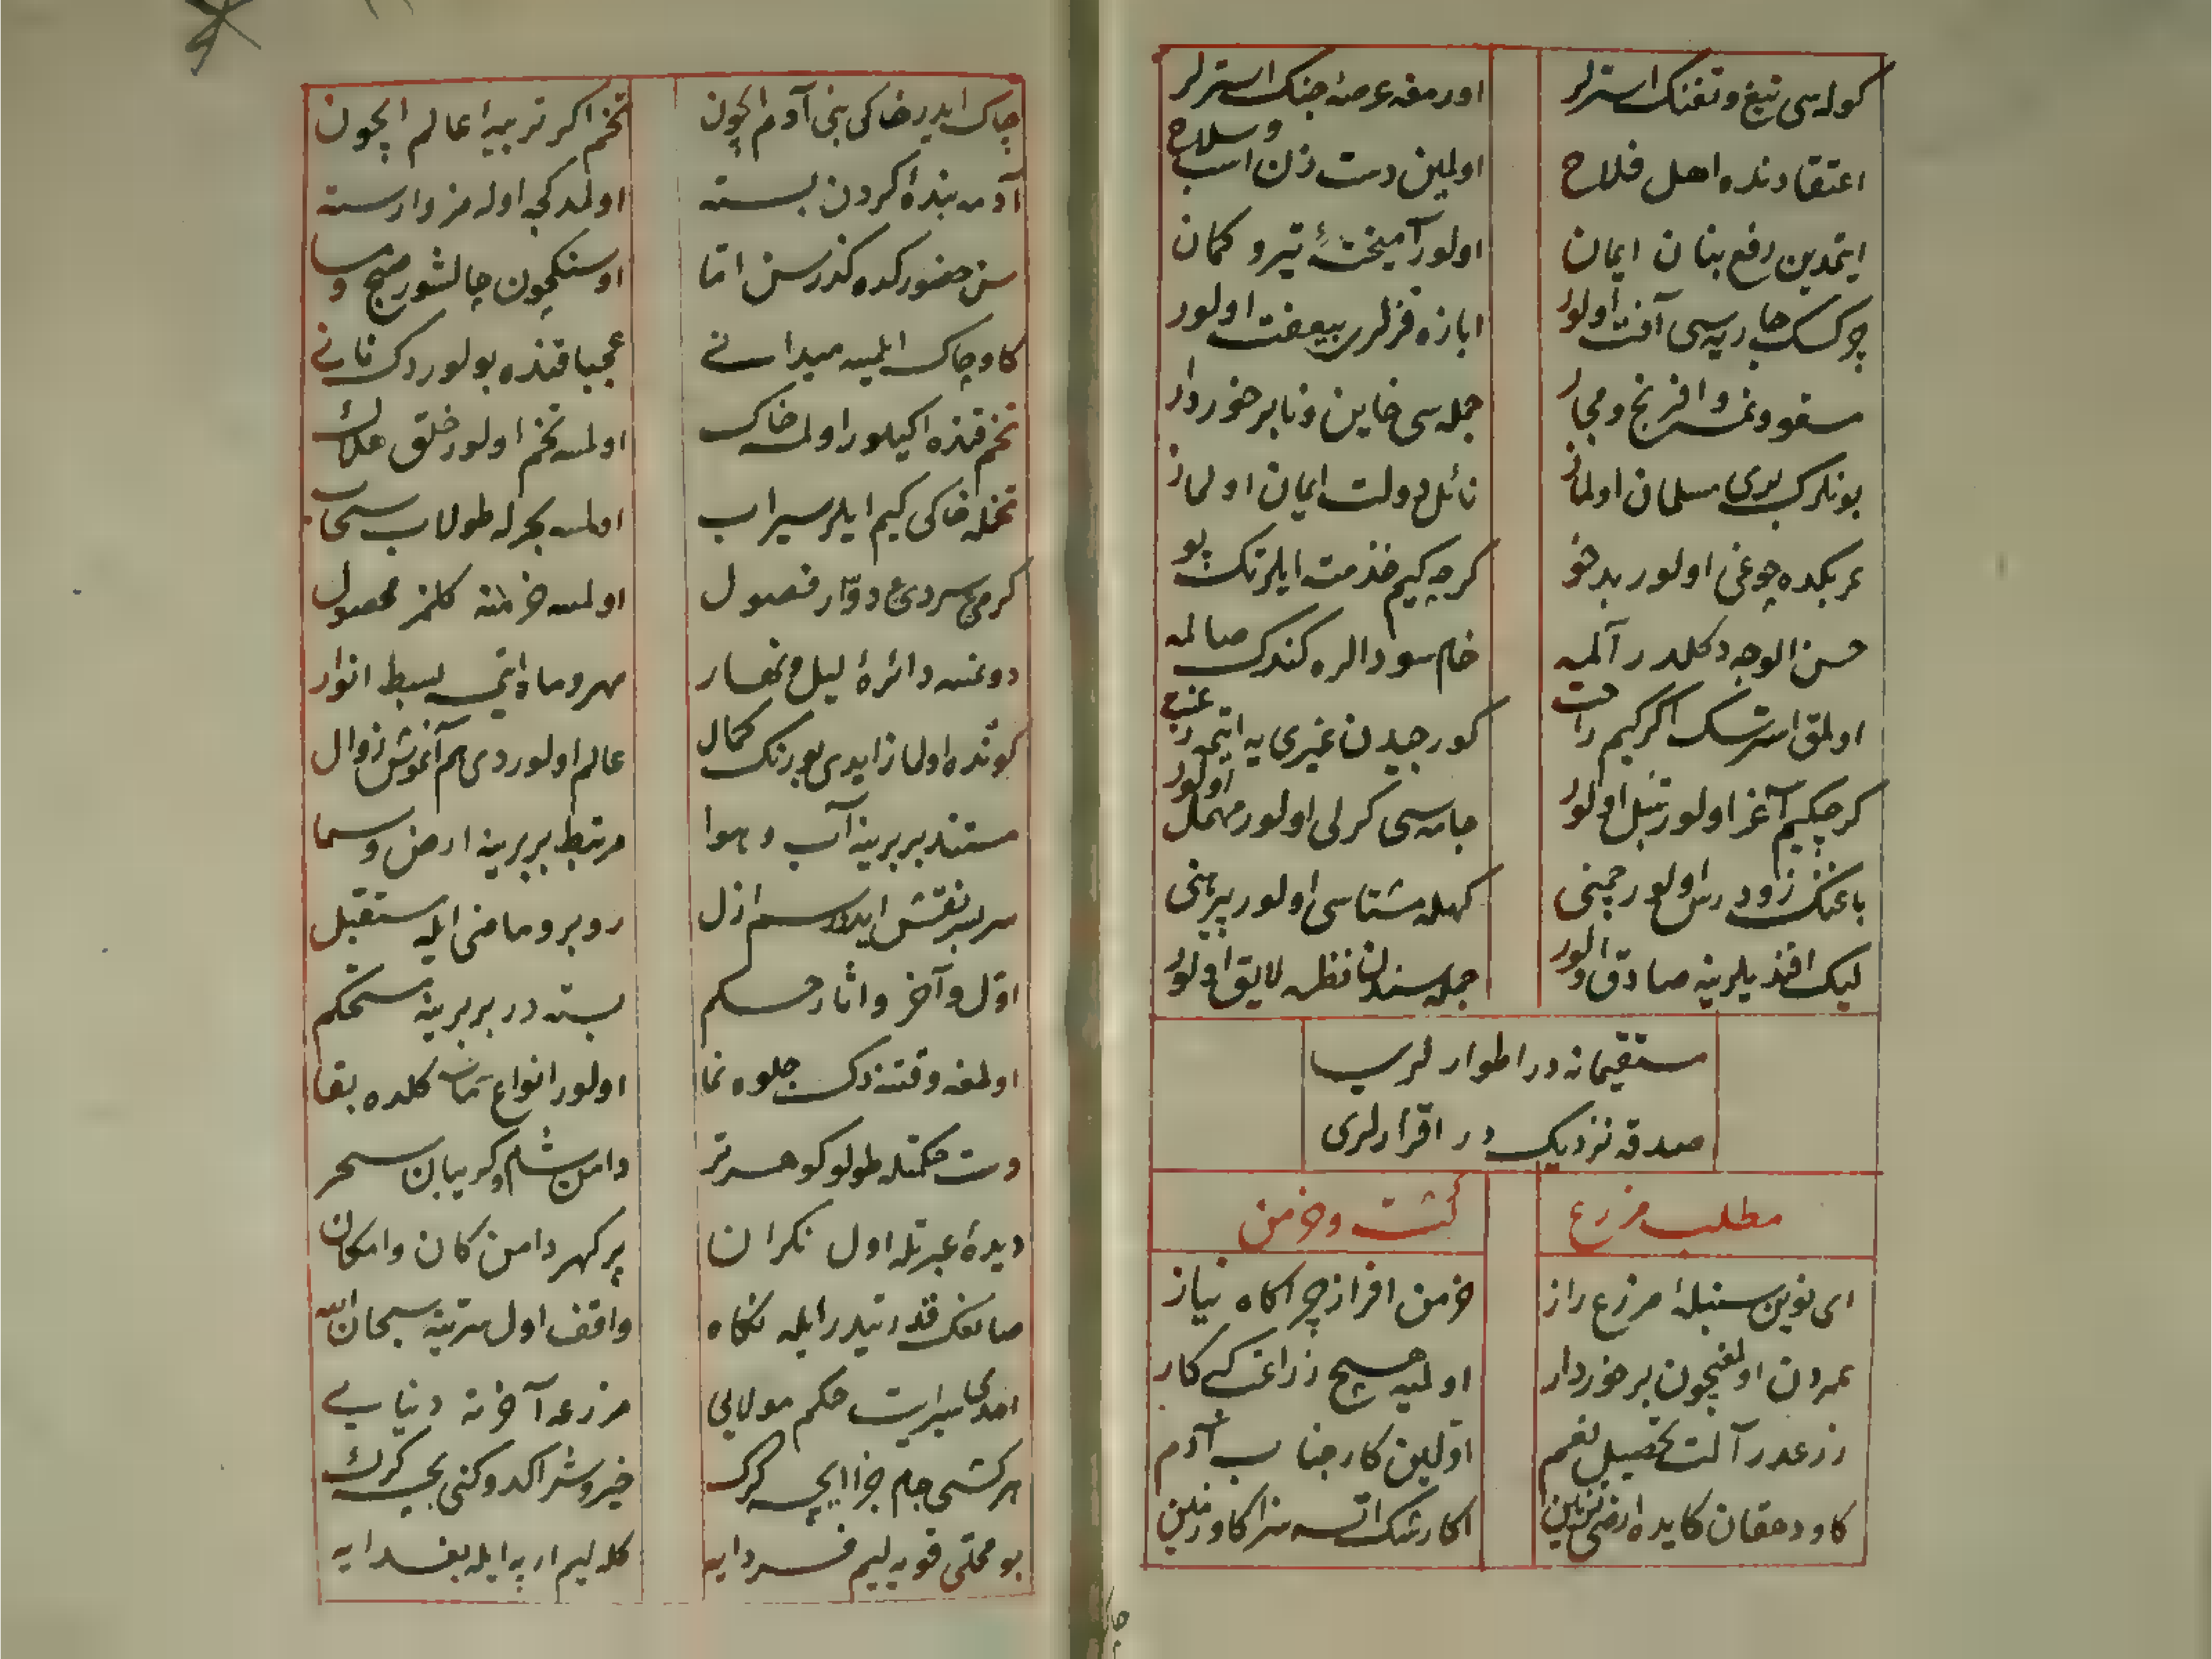 كوله سی تیغ و تفنك استرلر اورمغه عرصهٔ جنك استرلر
اعتقادنده اهل فلاح اولمین دست زن اسب و سلاح
ایتمدین رفع بنان ایمان اولور آمیختهٔ تیر و كمان
چركسك جاریه سی آفت اولور ابازه قزلری بیعفت اولور
و افرنج و مجار جمله سی خاین و نابرخوردار
بونلرك بری مسلمان اولماز نائل دولت ایمان اولماز
عربكده چوغی اولور بدخو كرچه كیم خدمت ایلر تك پو
حسن الوجه دكلدر آلمه خام سودالره كندك صالمه
اولمق استرسك اكر كیم راحت كورجیدن غیری یه ایتمه رغبت
كرچكیم آغز اولور تنبل اولور جامه سی كرلی اولور مهمل اولور
باغنك زود رس اولور چمنی كهله مشتاسی اولور پیرهنی
لیك افندیلرینه صادق اولور جمله سندن نظره لایق اولور
مستقیمانه در اطوارلری
صدقه نزدیك در اقرارلری
مطلب مزرع كشت و خرمن
ای نوین سنبلهٔ مزرع راز خرمن افراز چراكاه نیاز
عمردن اولمغیچون برخوردار اولمیه هیچ زراعت كبی كار
زرعدر آلت تحصیل نعم اولین كار جناب آدم
كاو دهقان كایده ارضی اكارشك اتسه سزا كاو زمین
چاك ایدر خاكی بنی آدم ایچون تخم اكر تربیهٔ عالم ایچون
آدمه بنده كردن بسته اولمدكجه اوله مز وارسته
سن حضوركده كذرسن اما او سنكچون چالشور صبح و مسا
كاو چاك ایلمسه میدانی عجبا قنده بولوردك نانی
تخم قنده اكیلور اولمسه خاك اولمسه تخم اولور خلق هلاك
تخمله خاكی كیم ایلر سیراب اولمسه بحرله طولاب سحاب
كرمی سردی دوّار فصول اولمسه خرمنه كلمز محصول
دونمسه دائرهٔ لیل و نهار مهر و ماه ایتمسه بسط انوار
كونده اولماز ایدی بو رنك كمال عالم اولوردی هم آغوش زوال
مستند بربرینه آب و هوا مرتبط بربرینه ارض و سما
سربسر نقش ایله رسم ازل روبرو ماضی ایله مستقبل
اوّل و آخر و آثار حكم بسته در بربرینه مستحكم
اولمغه وقتنه دك جلوه نما اولور انواع كلده بقا
دست حكمتله طولو كوهر تر دامن شام و كریبان سحر
دیدهٔ عبرتله اول نكران پر كهر دامن كان و امكان
صانعك قدرتیدر ایله نكاه واقف اول سرّینه سبحان الله
حكم مولایی مزرعه آخرته دنیایی
هركشی جام جزا ایچسه كرك خیر و شر اكدوكنی بچسه كرك
بو محلی قویه لیم فردایه كله لیم ارپه ایله بغدایه